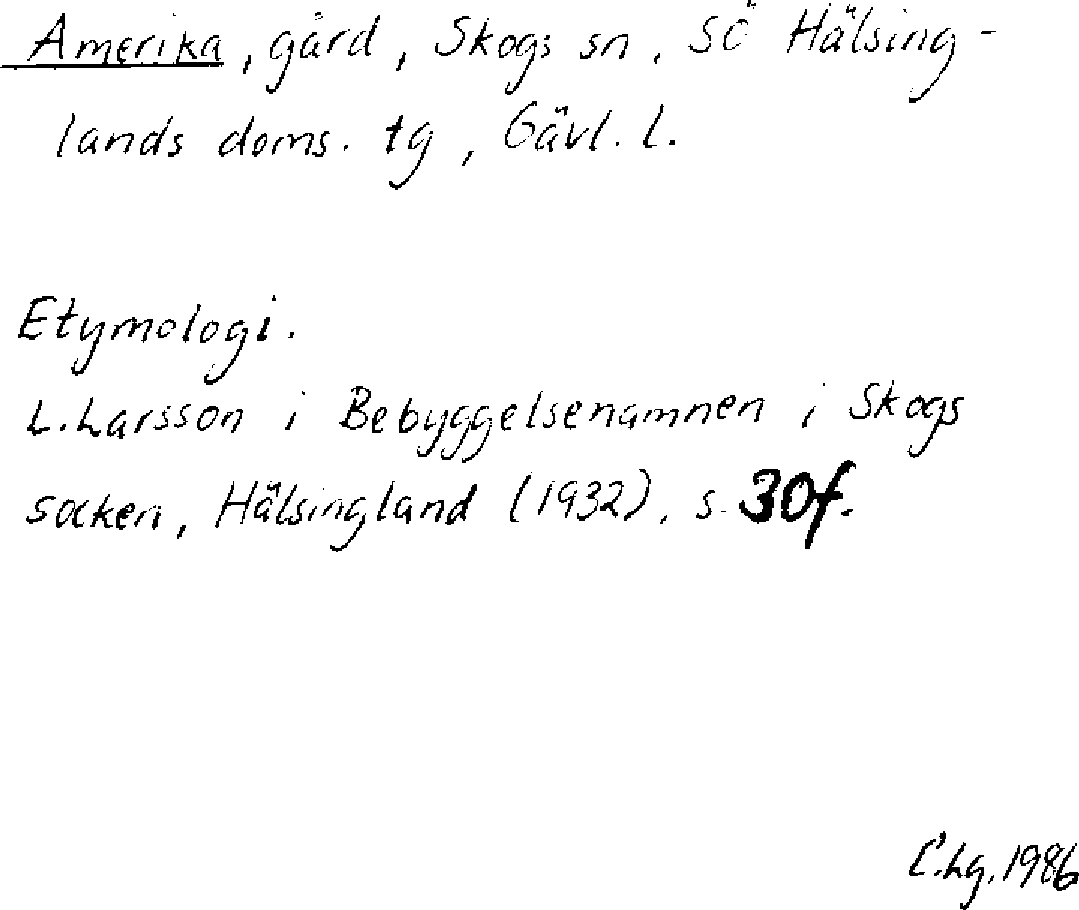 Amerika, gård, Skogs sn, Sö Hälsing-
lands doms. tg, Gävl. l.
Etymologi.
L. Larsson i Bebyggelsenamnen i Skogs
socken, Hälsingland (1932), s. 30f.
C.Lg. 1986